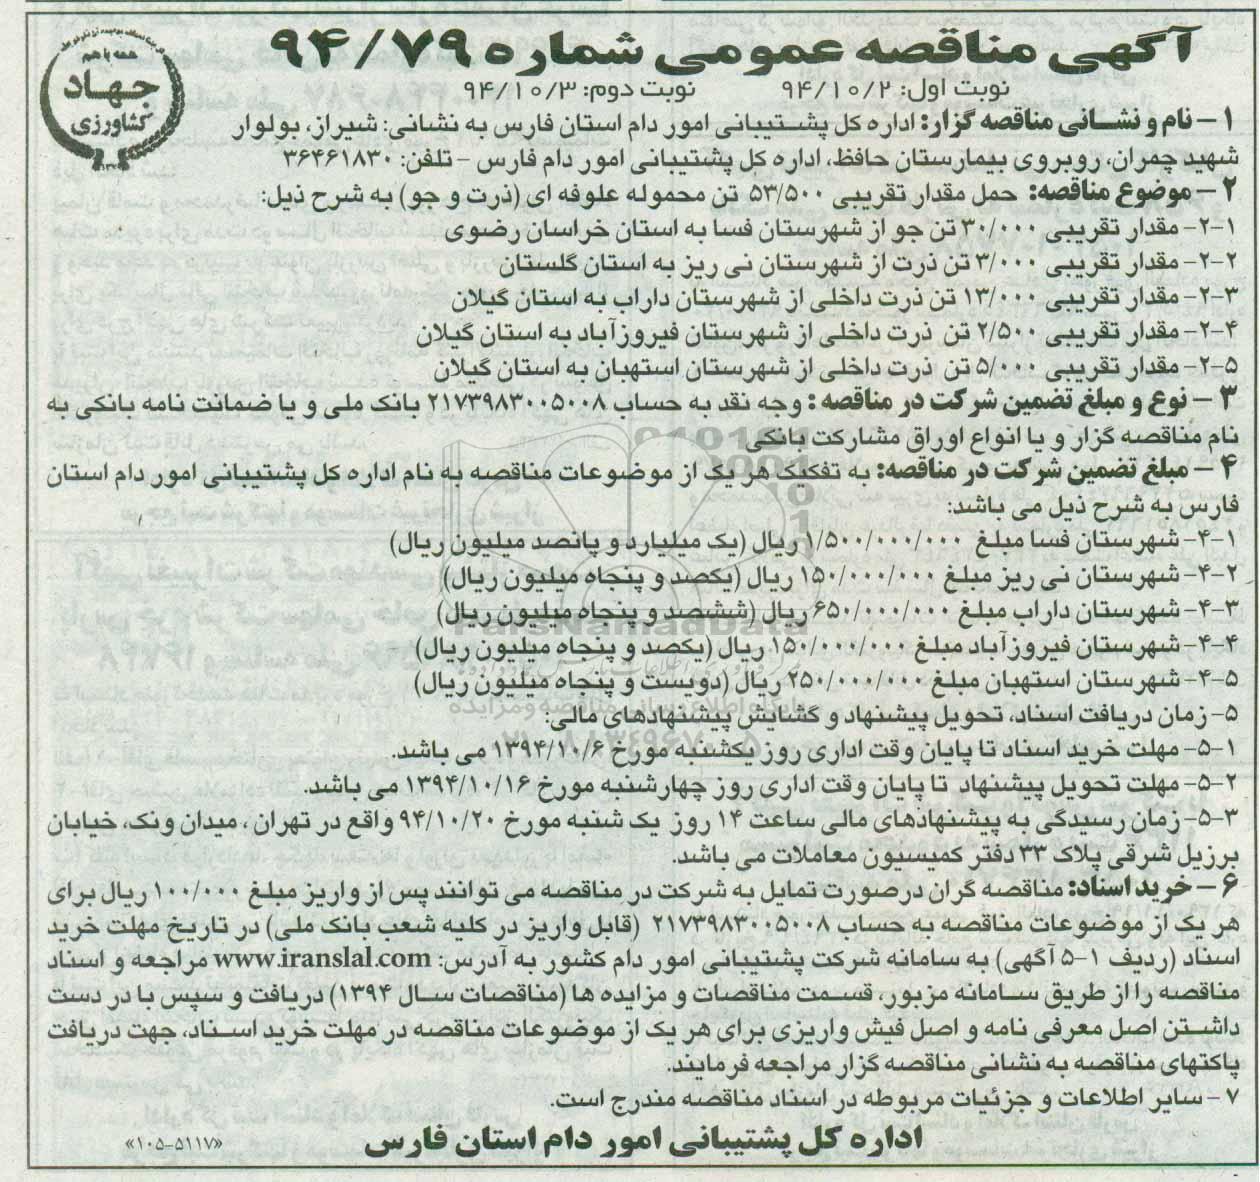 آگهی مناقصه عمومی شماره ۹۴/۷۹
همه با هم
جهاد
کشاورزی
نوبت اول: ۹۴/۱۰/۲ نوبت دوم: ۹۴/۱۰/۳
۱- نام و نشانی مناقصه گزار: اداره کل پشتیبانی امور دام استان فارس به نشانی: شیراز، بولوار
شهید چمران، روبروی بیمارستان حافظ، اداره کل پشتیبانی امور دام فارس - تلفن: ۳۶۴۶۱۸۳۰
۲- موضوع مناقصه: حمل مقدار تقریبی ۵۳/۵۰۰ تن محموله علوفه ای (ذرت و جو) به شرح ذیل:
۲-۱- مقدار تقریبی ۳۰/۰۰۰ تن جو از شهرستان فسا به استان خراسان رضوی
۲-۲- مقدار تقریبی ۳/۰۰۰ تن ذرت از شهرستان نی ریز به استان گلستان
۲-۳- مقدار تقریبی ۱۳/۰۰۰ تن ذرت داخلی از شهرستان داراب به استان گیلان
۲-۴- مقدار تقریبی ۲/۵۰۰ تن ذرت داخلی از شهرستان فیروزآباد به استان گیلان
۲-۵- مقدار تقریبی ۵/۰۰۰ تن ذرت داخلی از شهرستان استهبان به استان گیلان
۳- نوع و مبلغ تضمین شرکت در مناقصه: وجه نقد به حساب ۲۱۷۳۹۸۳۰۰۵۰۰۸ بانک ملی و یا ضمانت نامه بانکی به
نام مناقصه گزار و یا انواع اوراق مشارکت بانکی
۴- مبلغ تضمین شرکت در مناقصه: به تفکیک هر یک از موضوعات مناقصه به نام اداره کل پشتیبانی امور دام استان
فارس به شرح ذیل می باشد:
۴-۱- شهرستان فسا مبلغ ۱/۵۰۰/۰۰۰/۰۰۰ ریال (یک میلیارد و پانصد میلیون ریال)
۴-۲- شهرستان نی ریز مبلغ ۱۵۰/۰۰۰/۰۰۰ ریال (یکصد و پنجاه میلیون ریال)
۴-۳- شهرستان داراب مبلغ ۶۵۰/۰۰۰/۰۰۰ ریال (ششصد و پنجاه میلیون ریال)
ParsNamadData
۴-۴- شهرستان فیروزآباد مبلغ ۱۵۰/۰۰۰/۰۰۰ ریال (یکصد و پنجاه میلیون ریال)
۴-۵- شهرستان استهبان مبلغ ۲۵۰/۰۰۰/۰۰۰ ریال (دویست و پنجاه میلیون ریال)
۵- زمان دریافت اسناد، تحویل پیشنهاد و گشایش پیشنهادهای مالی:
۵-۱- مهلت خرید اسناد تا پایان وقت اداری روز یکشنبه مورخ ۱۳۹۴/۱۰/۶ می باشد.
۵-۲- مهلت تحویل پیشنهاد تا پایان وقت اداری روز چهارشنبه مورخ ۱۳۹۴/۱۰/۱۶ می باشد.
۵-۳- زمان رسیدگی به پیشنهادهای مالی ساعت ۱۴ روز یک شنبه مورخ ۹۴/۱۰/۲۰ واقع در تهران، میدان ونک، خیابان
برزیل شرقی پلاک ۳۳ دفتر کمیسیون معاملات می باشد.
۶- خرید اسناد: مناقصه گران درصورت تمایل به شرکت در مناقصه می توانند پس از واریز مبلغ ۱۰۰/۰۰۰ ریال برای
هر یک از موضوعات مناقصه به حساب ۲۱۷۳۹۸۳۰۰۵۰۰۸ (قابل واریز در کلیه شعب بانک ملی) در تاریخ مهلت خرید
اسناد (ردیف ۱-۵ آگهی) به سامانه شرکت پشتیبانی امور دام کشور به آدرس: www.iranslal.com مراجعه و اسناد
مناقصه را از طریق سامانه مزبور، قسمت مناقصات و مزایده ها (مناقصات سال ۱۳۹۴) دریافت و سپس با در دست
داشتن اصل معرفی نامه و اصل فیش واریزی برای هر یک از موضوعات مناقصه در مهلت خرید اسناد، جهت دریافت
پاکتهای مناقصه به نشانی مناقصه گزار مراجعه فرمایند.
۷- سایر اطلاعات و جزئیات مربوطه در اسناد مناقصه مندرج است.
اداره کل پشتیبانی امور دام استان فارس
«۱۰۵-۵۱۱۷»